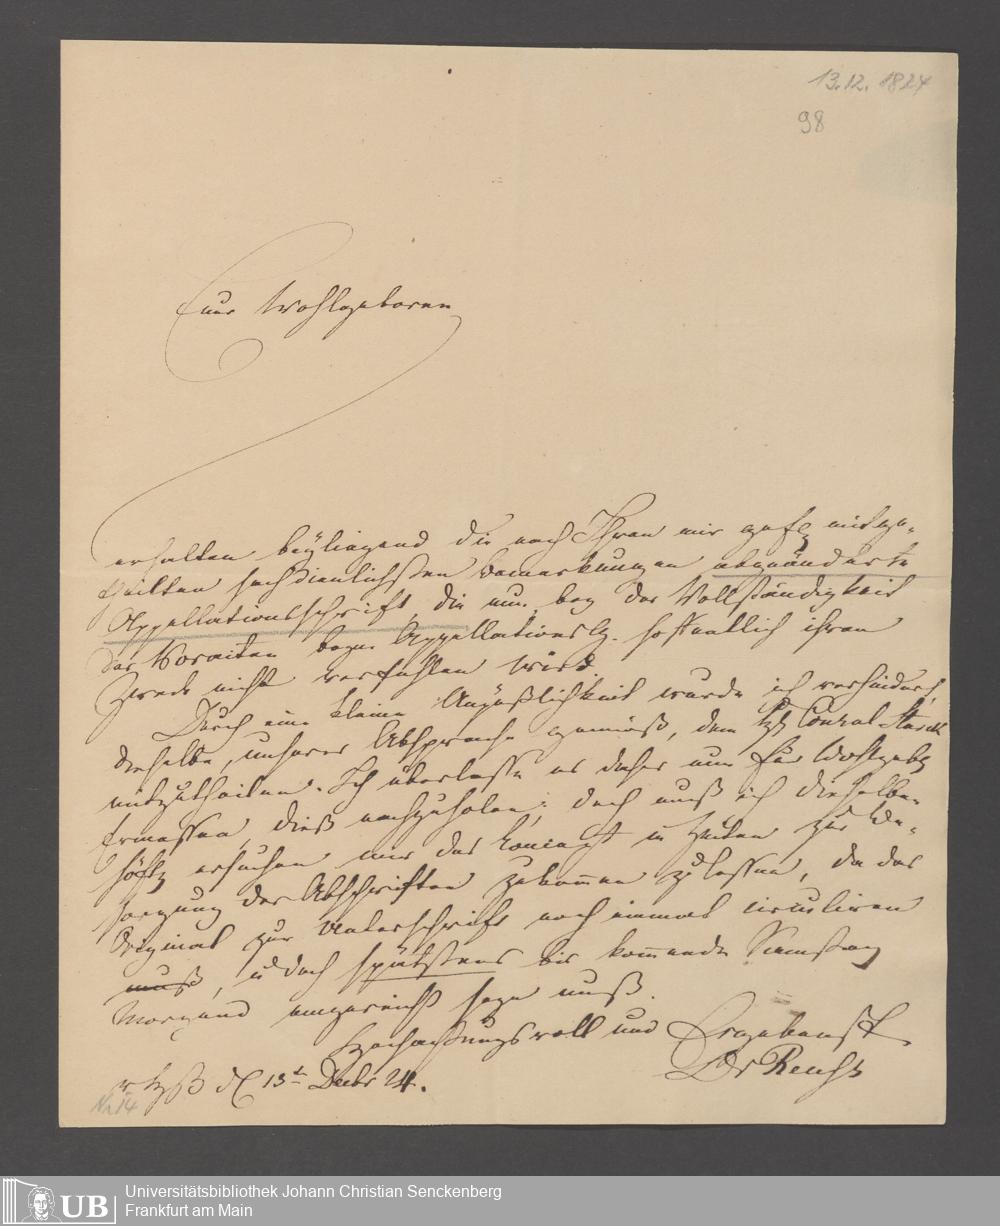 13.12.1824
98
Euer Wohlgeboren
erhalten beyliegend die nach Ihren mir gefl mitge-
theilten sachdienlichsten Bemerkungen abgeänderte
Appellationsschrift, die nun bey der Vollständigkeit
der hoffentlich ihren
Zweck nicht verfehlen wird.
Durch eine kleine Unpäßlichkeit wurde ich verhindert,
dieselbe, unserer Absprache gemäß, dem Consul
mitzutheilen. Ich überlasse es daher nun Eur Wohlgeb
Ermessen, dieß nachzuholen; doch muß ich dieselben
höfl ersuchen mir das Concept in Zeiten zur Be-
sorgung der Abschriften zukommen zu lassen, da das
Original zur Unterschrift noch einmal circuliren
muß, u doch spätstens bis kommende Samstag
Morgend eingereicht seyn muß.
Hochachtungsvoll und Ergebenst
Dr Reuss
13t Decbr 24.
No 14
UB
Universitätsbibliothek Johann Christian Senckenberg
Frankfurt am Main